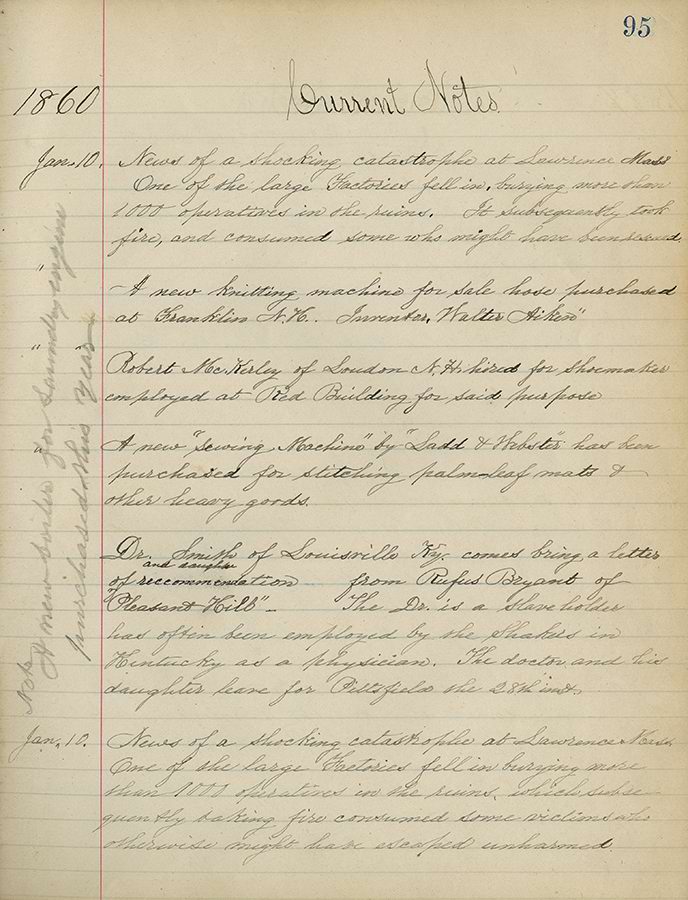 95
1860
Current Notes
Jan. 10. News of a shocking catastrophe at Lawrence Mass
One of the large Factories fell in, burying more than
1000 operatives in the ruins. It subsequently took
fire, and consumed some who might have been
" A new knitting machine for sale hose purchased
at Franklin N.H. Inventer, Walter Aiken"
" Robert Mc.Kerley of Loudon N.H. hired for shoemaker
employed at Red Building for said purpose
" A new "sewing Machine" by "Ladd & Webster" has been
purchased for stitching palm-leaf mats &
other heavy goods.
Dr. Smith of Louisville Ky. comes bring a letter
and daughter
of reccommendation from Rufus Bryant of
"Pleasant Hill"- The Dr. is a slaveholder
has often been employed by the Shakers in
Kentucky as a physician. The doctor and his
daughter leave for Pittsfield the 28th inst.
Jan. 10. News of a shocking catastrophe at Lawrence Mass.
One of the large Factories fell in burying more
than 1000 operatives in the ruins, which subse-
quently taking fire consumed some victims who
otherwise might have escaped unharmed
Note A new boiler for Laundry engine
purchased this year